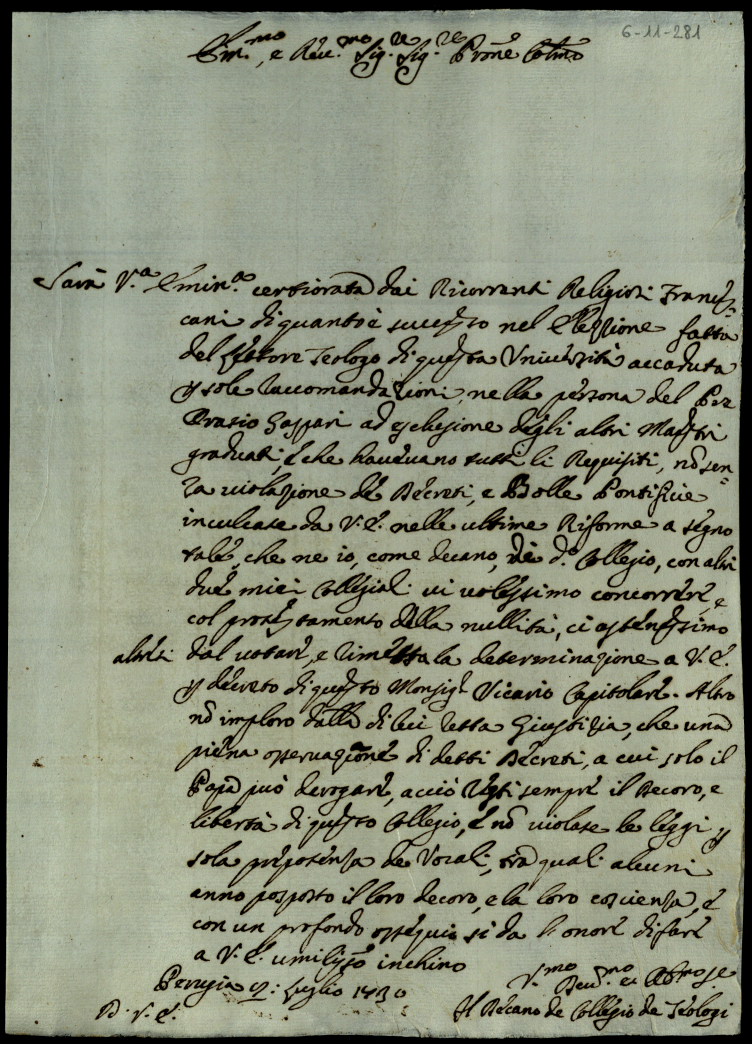 6-11-281
Em.mo, e Rev.mo Sig.re Sig.re Prone Colmo
Sarà V.a Emin.a certiorata dai Ricorrenti Religiosi Frances-
cani di quanto è successo nel Elezzione fatta
del Lettore Teologo di questa Università accaduta
p sole raccomandazioni, nella persona del Pre
Orasio Gaspari ad esclusione degli altri Maestri
graduati, è che havevano tutti li Requisiti, nõ sen=
za violazione de Decreti, e Bolle Pontificie
inculcate da V.E. nelle ultime Riforme a segno
tale, che ne io, come decano, di d.o Collegio, con altri
due miei Collegiali vi volessimo concorrere, e
col protestamento della nullità, ci astenessimo
altresì dal votare, e rimessa la determinazione a V.E.
p decreto di questo Monsig.r Vicario Capitolare. Altro
nõ imploro dalla di lei retta Giustizia, che una
piena osservazione di detti Decreti, a cui solo il
Papa può derogare, acciò resti sempre il Decoro, e
libertà di questo Collegio, è nõ violate le leggi p
sola prepotenza de Vocali, trà quali alcuni
anno posposto il loro decoro, e la loro coscienza, è
con un profondo ossequio si da l'onore di fare
a V.E. umilissõ inchino
Perugia Luglio 1730
D. V. E.
V.mo Dev.mo ed
Il Decano de Collegio de Teologi